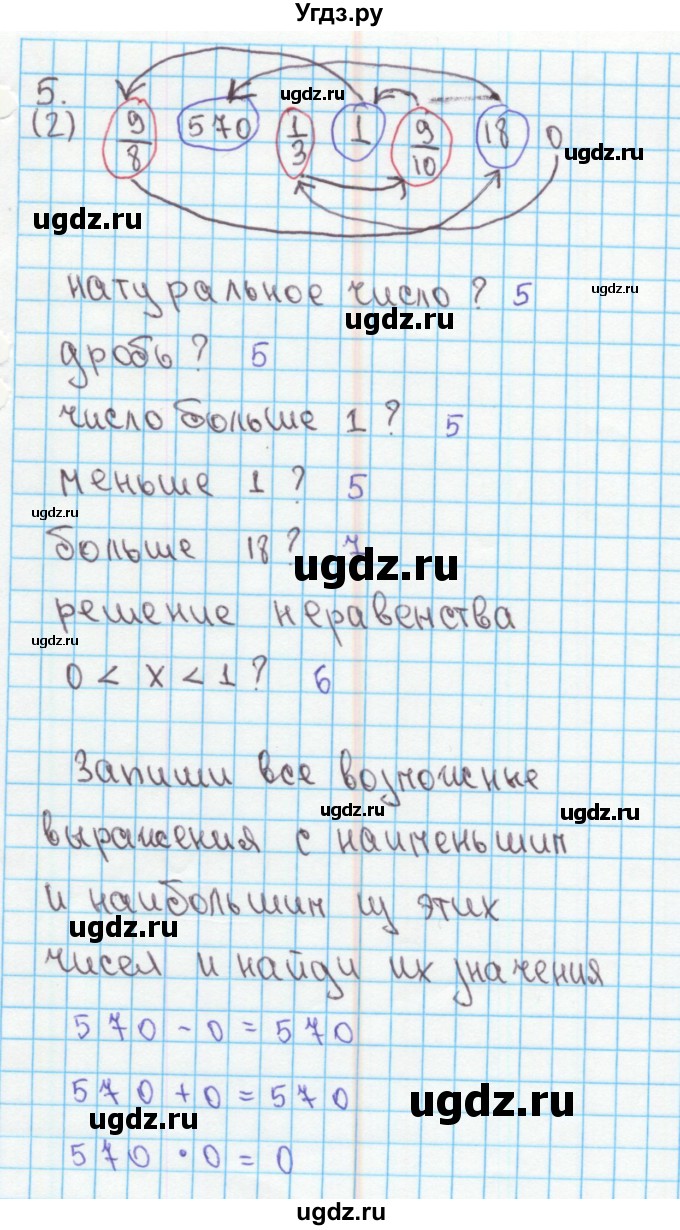 Угдз.ру
5.
(2) 9/8 570 1/3 1 9/10 18 0
ugdz.ru
ugdz.ru
ugdz.ru
натуральное число? 5
ugdz.ru
ugdz.ru
дробь? 5
число больше 1? 5
меньше 1? 5
ugdz.ru
больше 18? 7
ugdz.ru
решение неравенства
ugdz.ru
0 < x < 1? 6
Запиши все возможные
ugdz.ru
ugdz.ru
выражения с наименьшим
и наибольшим из этих
ugdz.ru
чисел и найди их значения
570 - 0 = 570
570 + 0 = 570
ugdz.ru
ugdz.ru
570 · 0 = 0
ugdz.ru